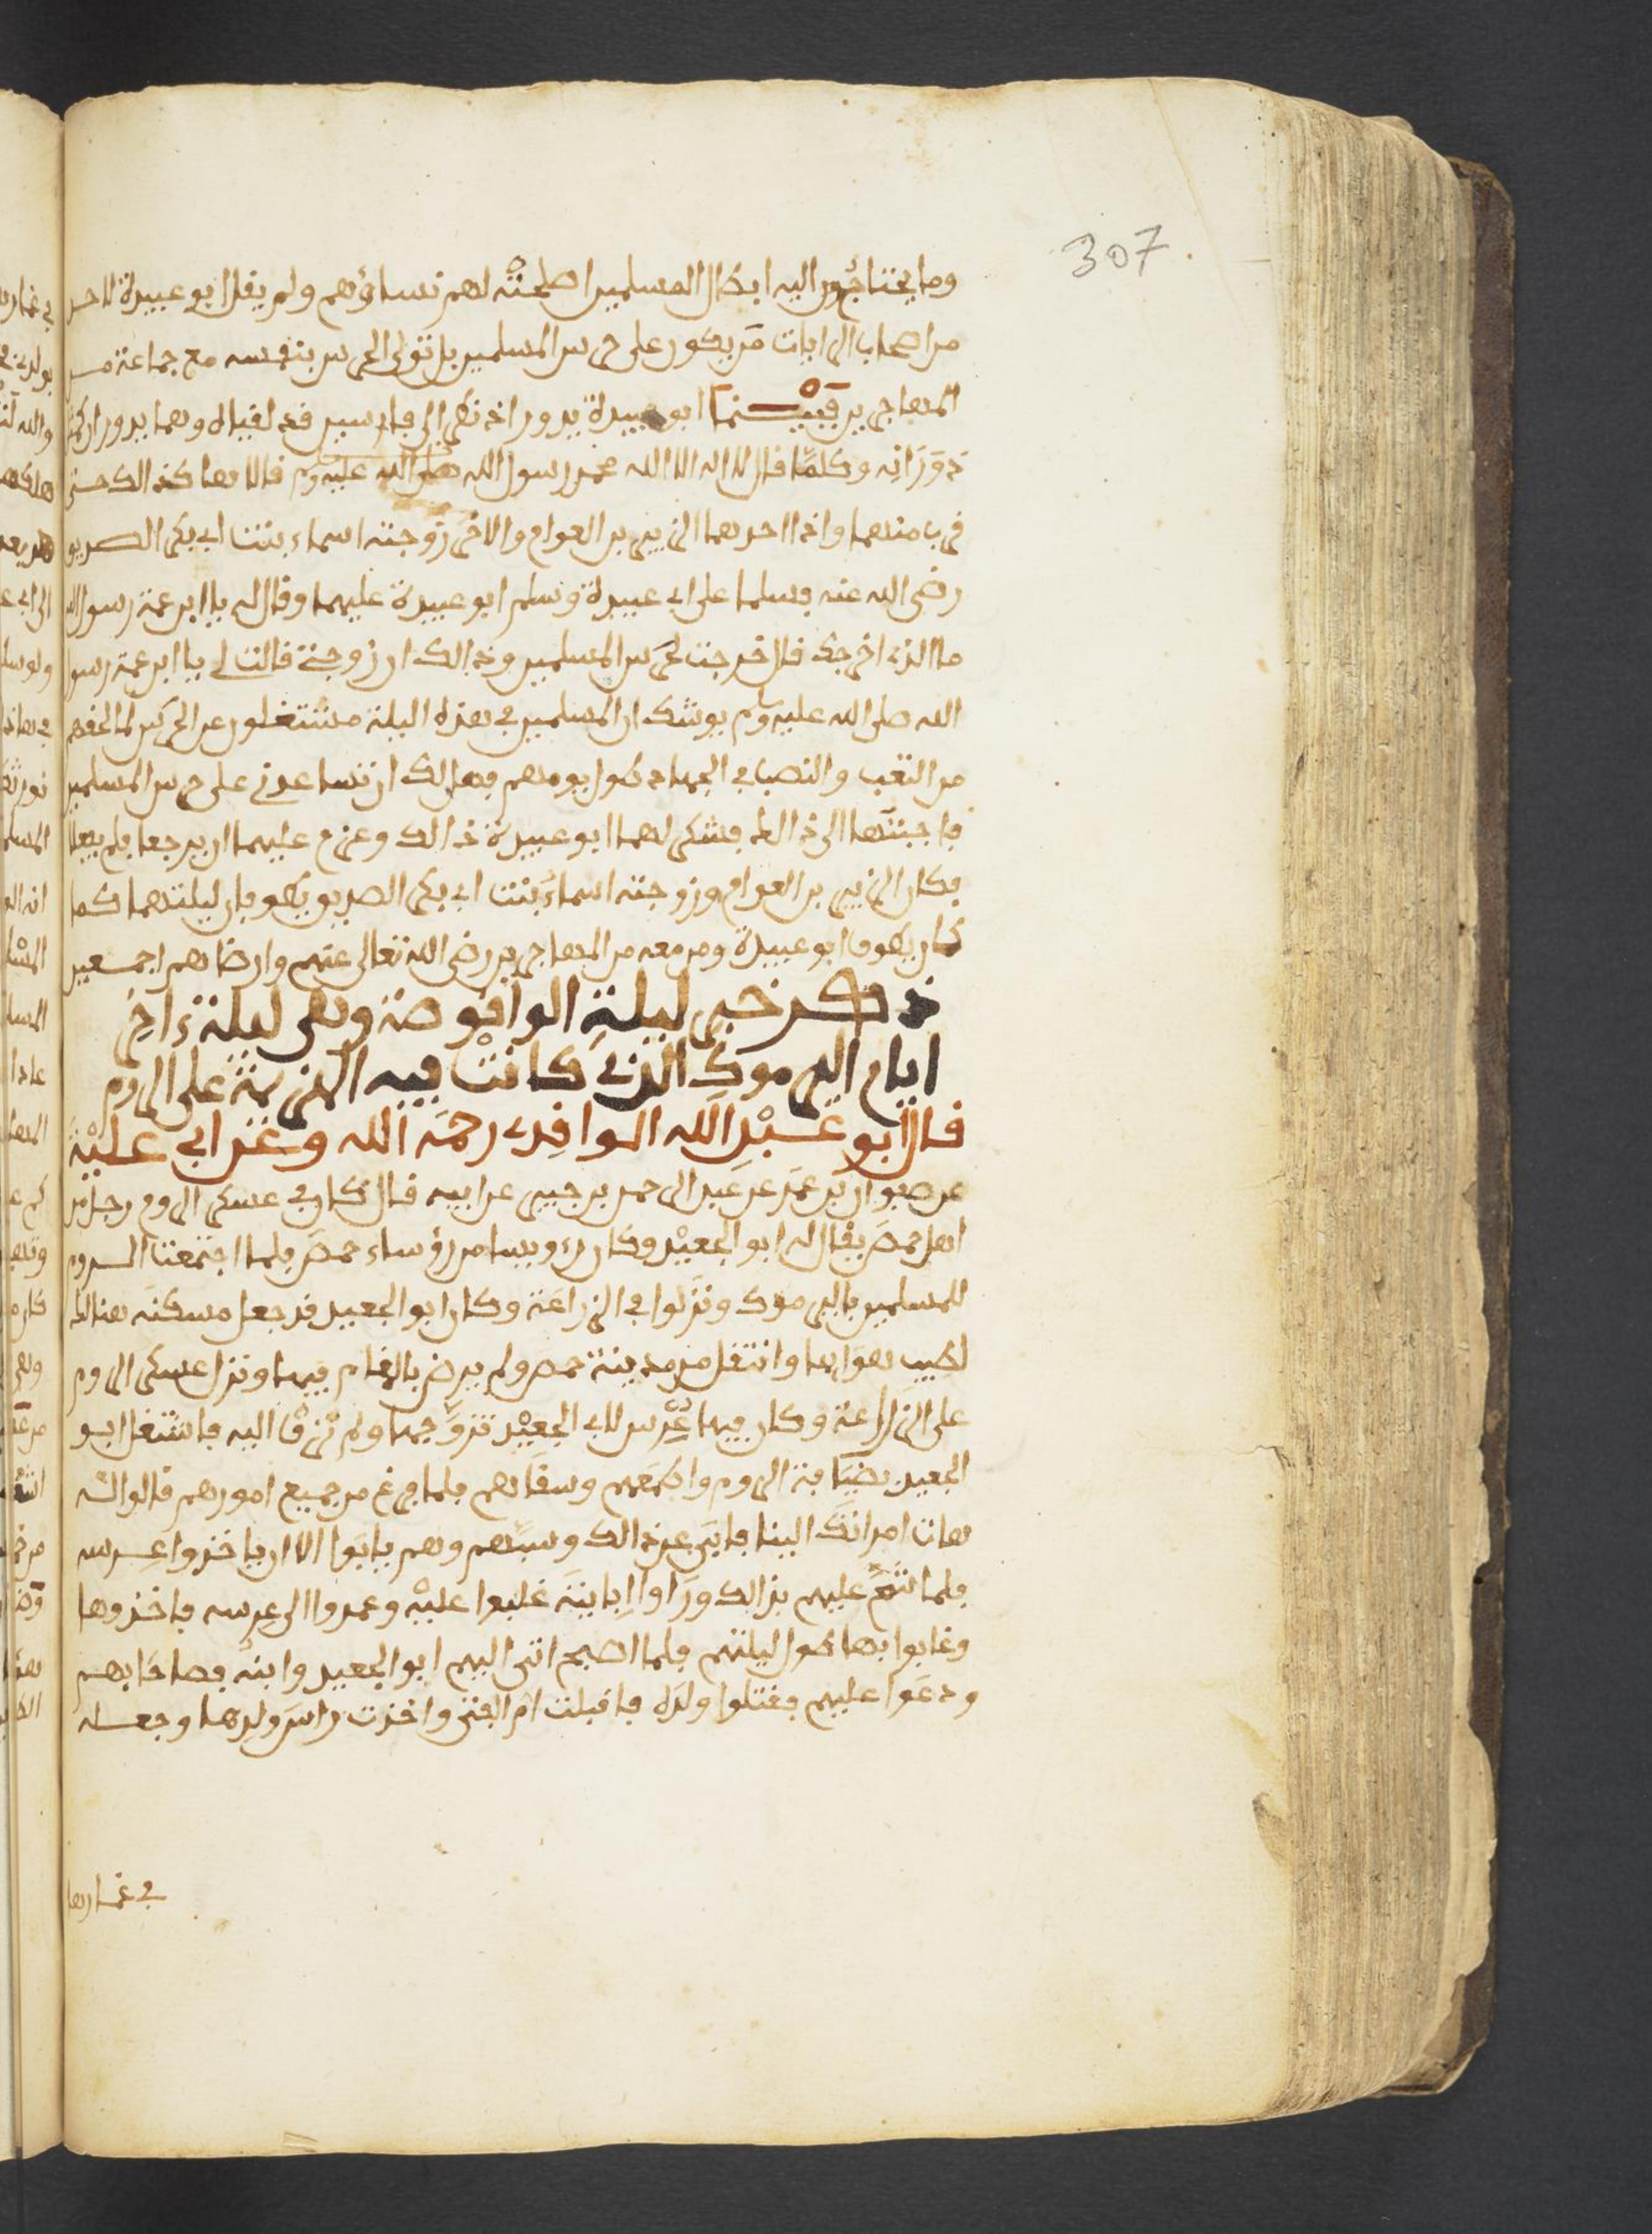 307
وما يحتاجون اليه ابطال المسلمين اصلحته لهم نساؤهم ولم يقل ابو عبيدة لاحد
من اصحاب الرايات من يكون على حرس المسلمين بل تولى الحرس بنفسه مع جماعة من
المهاجرين فبينما ابو عبيدة يدور اذ نظر الى فارسين قد لقياه وهما يدوران كما
دورانه وكلما قال لا اله الا الله محمد رسول الله صلى الله عليه وسلم قالا هما كذالك حتى
قرب منهما واذا احدهما الزبير بن العوام والاخر زوجته اسماء بنت ابي بكر الصديق
رضي الله عنه فسلما على ابي عبيدة وسلم ابو عبيدة عليهما وقال له يا ابن عمة رسول الله
ما الذي اخرجك قال خرجت لحرس المسلمين وذالك ان زوجتي قالت لي يا ابن عمة رسول
الله صلى الله عليه وسلم يوشك ان المسلمين في هذه الليلة مشتغلون عن الحرس لما لحقهم
من التعب والنصب في الجهاد طول يومهم فهل لك ان تساعدني على حرس المسلمين
فاجبتها الى ذالك فشكر لهما ابو عبيدة ذالك وعزم عليهما ان يرجعا فلم يفعلا
فكان الزبير بن العوام وزوجته اسماء بنت ابي بكر الصديق يطوفان ليلتهما كما
كان يطوف ابو عبيدة ومن معه من المهاجرين رضي الله تعالى عنهم وارضاهم اجمعين
ذكر خبر ليلة الواقوصة وهي ليلة اخر
ايام اليرموك الذي كانت فيه الهزيمة على الروم
قال ابو عبد الله الواقدي رحمه الله وغزا بي عليه
عن صفوان بن عمر عن عبد الرحمن بن جبير عن ابيه قال كان في عسكر الروم رجل من
اهل حمص يقال له ابو الجعيد وكان رءيسا من رؤساء حمص فلما اجتمعت الروم
للمسلمين باليرموك ونزلوا في الزراعة وكان ابو الجعيد قد جعل مسكنه هنالك
لطيب هوايها وانتقل من مدينة حمص ولم يرض بالمقام فيها ونزل عسكر الروم
على الزراعة وكان فيها عرس لابي الجعيد تزوجها ولم تزف اليه فاشتغل ابو
الجعيد بضيافة الروم واطعمهم وسقاهم فلما فرغ من جميع امورهم قالوا له
هات امراتك الينا فابى عن ذالك وسبهم وهم يابوا الا ان ياخذوا عرسه
فلما شح عليهم بذالك وراوا ابايته غلبوا عليه وعمدوا الى عرسه فاخذوها
وغابوا بها طول ليلتهم فلما اصبح اتى اليهم ابو الجعيد وابنه فصاحا بهم
ودعوا عليهم فقتلوا ولده فاقبلت ام الفتى واخذت راس ولدها وجعله
في خمارها